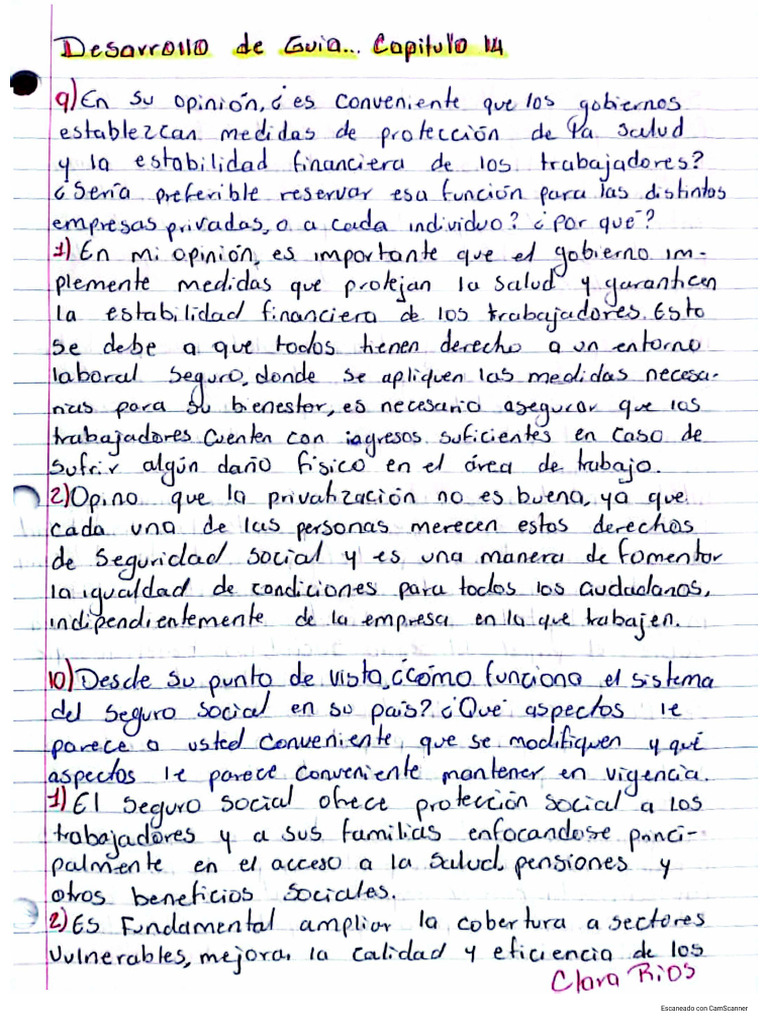 Desarrollo de Guia... Capitulo 14
9) En su opinión, ¿es conveniente que los gobiernos
establezcan medidas de protección de la salud
y la estabilidad financiera de los trabajadores?
¿Sería preferible reservar esa función para las distintas
empresas privadas, o a cada individuo? ¿por qué?
1) En mi opinión, es importante que el gobierno im-
plemente medidas que protejan la salud y garanticen
la estabilidad financiera de los trabajadores. Esto
se debe a que todos tienen derecho a un entorno
laboral seguro, donde se apliquen las medidas necesa-
rias para su bienestar, es necesario asegurar que los
trabajadores cuenten con ingresos suficientes en caso de
sufrir algún daño físico en el área de trabajo.
2) Opino que la privatización no es buena, ya que
cada una de las personas merecen estos derechos
de seguridad social y es una manera de fomentar
la igualdad de condiciones para todos los ciudadanos,
indipendientemente de la empresa en la que trabajen.
10) Desde su punto de vista, ¿cómo funciona el sistema
del seguro social en su país? ¿Qué aspectos le
parece a usted conveniente, que se modifiquen y qué
aspectos le parece conveniente mantener en vigencia.
1) El seguro social ofrece protección social a los
trabajadores y a sus familias enfocandose princi-
palmente en el acceso a la salud, pensiones y
otros beneficios sociales.
2) Es Fundamental ampliar la cobertura a sectores
vulnerables, mejorar la calidad y eficiencia de los
Clara Rios
Escaneado con CamScanner